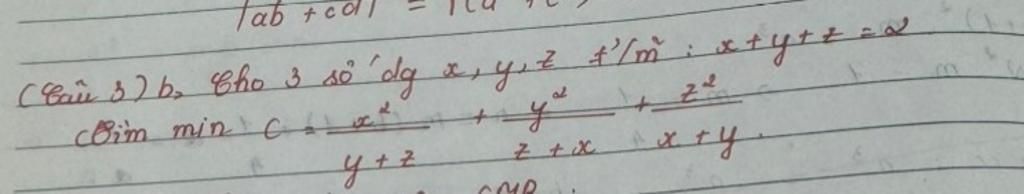 |ab + cd| =
(Câu 3) b, Cho 3 số dg x, y, z t/m : x + y + z = 2
Tìm min C = x²/(y + z) + y²/(z + x) + z²/(x + y).
CMR